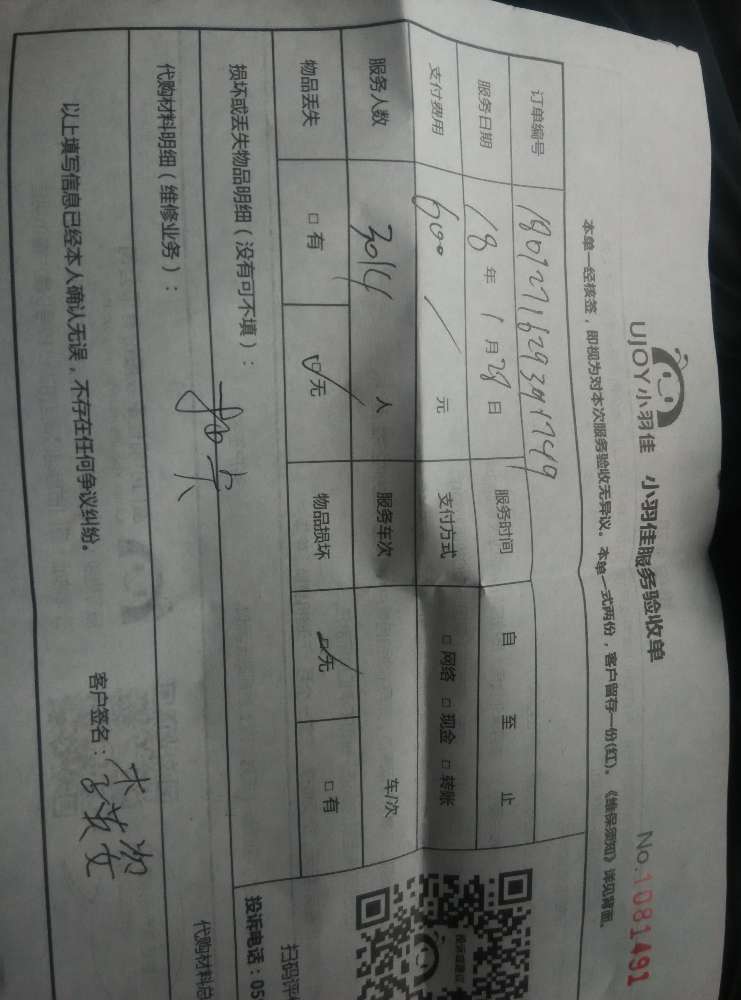 UJOY小羽佳 小羽佳服务验收单 No.1081491
本单一经核签，即视为对本次服务验收无异议。本单一式两份，客户留存一份(红)。《维保须知》详见背面。
订单编号 1801271629391749
服务日期 18 年 1 月 28 日 服务时间 自 至 止
支付费用 600 / 元 支付方式 □网络 □现金 □转账
服务人数 人 服务车次 车/次
物品丢失 □有 □无 物品损坏 □无 □有
损坏或丢失物品明细（没有可不填）：
扫码评
投诉电话：05
代购材料明细（维修业务）：
代购材料总
以上填写信息已经本人确认无误，不存在任何争议纠纷。 客户签名：